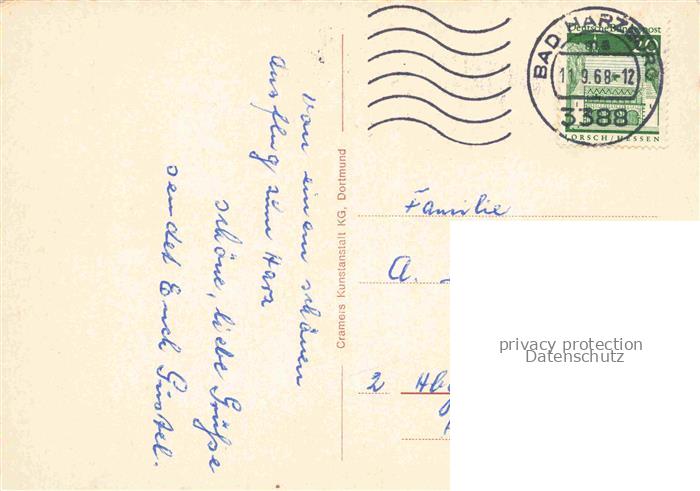 Von einem schönen
Ausflug zum Harz
schöne, liebe Grüße
sendet Euch Gustel.
Cramers Kunstanstalt KG, Dortmund
BAD HARZBURG
11.9.68-12
3388
Deutsche Bundespost
20
LORSCH/HESSEN
Familie
A.
2
privacy protection
Datenschutz